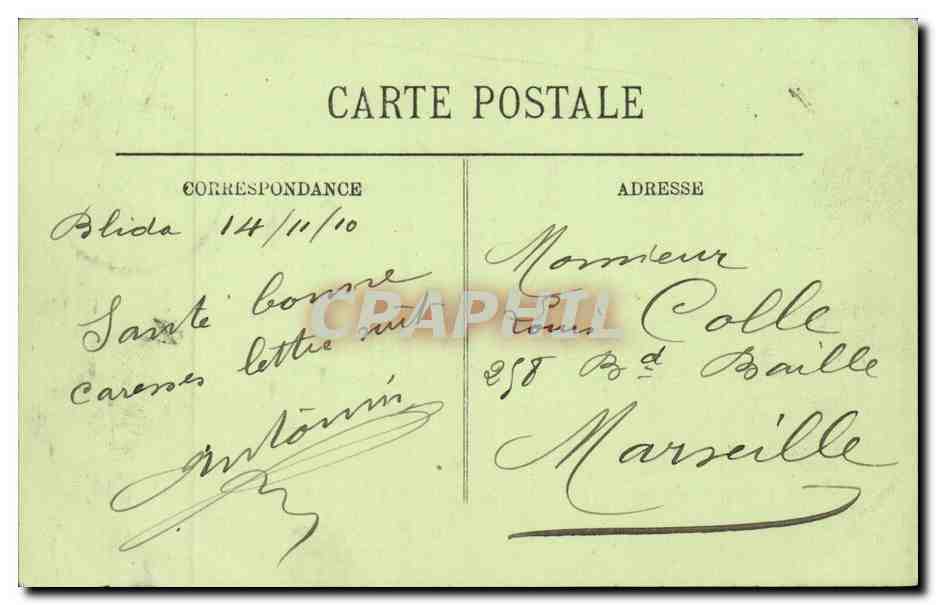 CARTE POSTALE
CORRESPONDANCE
Blida 14/11/10
Santé bonne
caresses lettre suit
Antonin
ADRESSE
Monsieur
Louis Colle
258 Bd Baille
Marseille
CRAPHIL